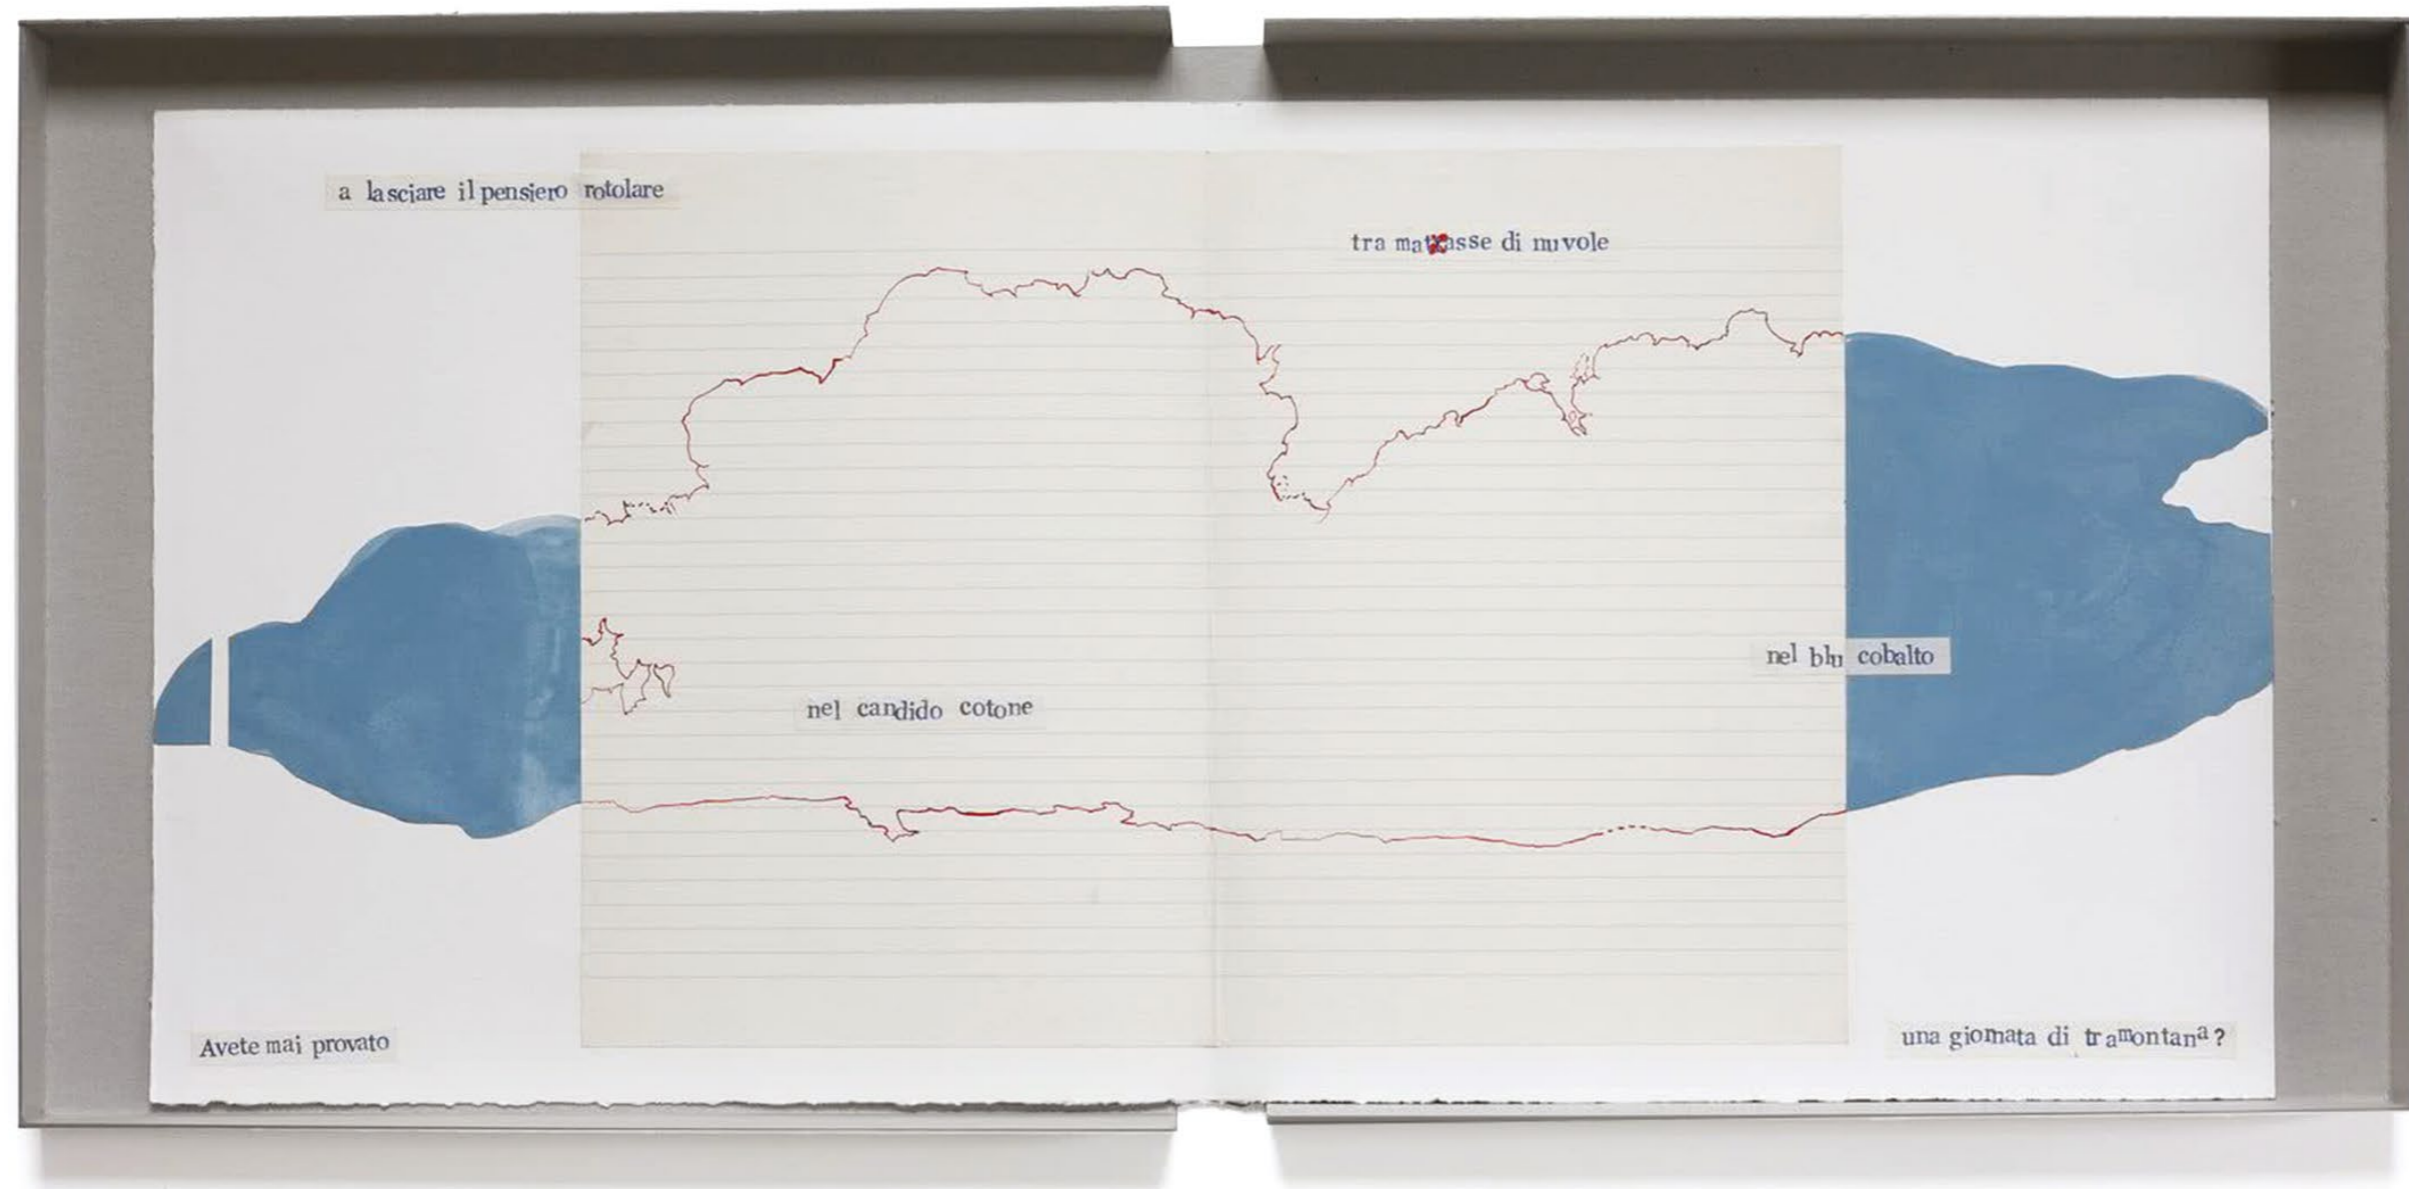 a lasciare il pensiero rotolare
tra matasse di nuvole
nel blu cobalto
nel candido cotone
Avete mai provato
una giornata di tramontana?